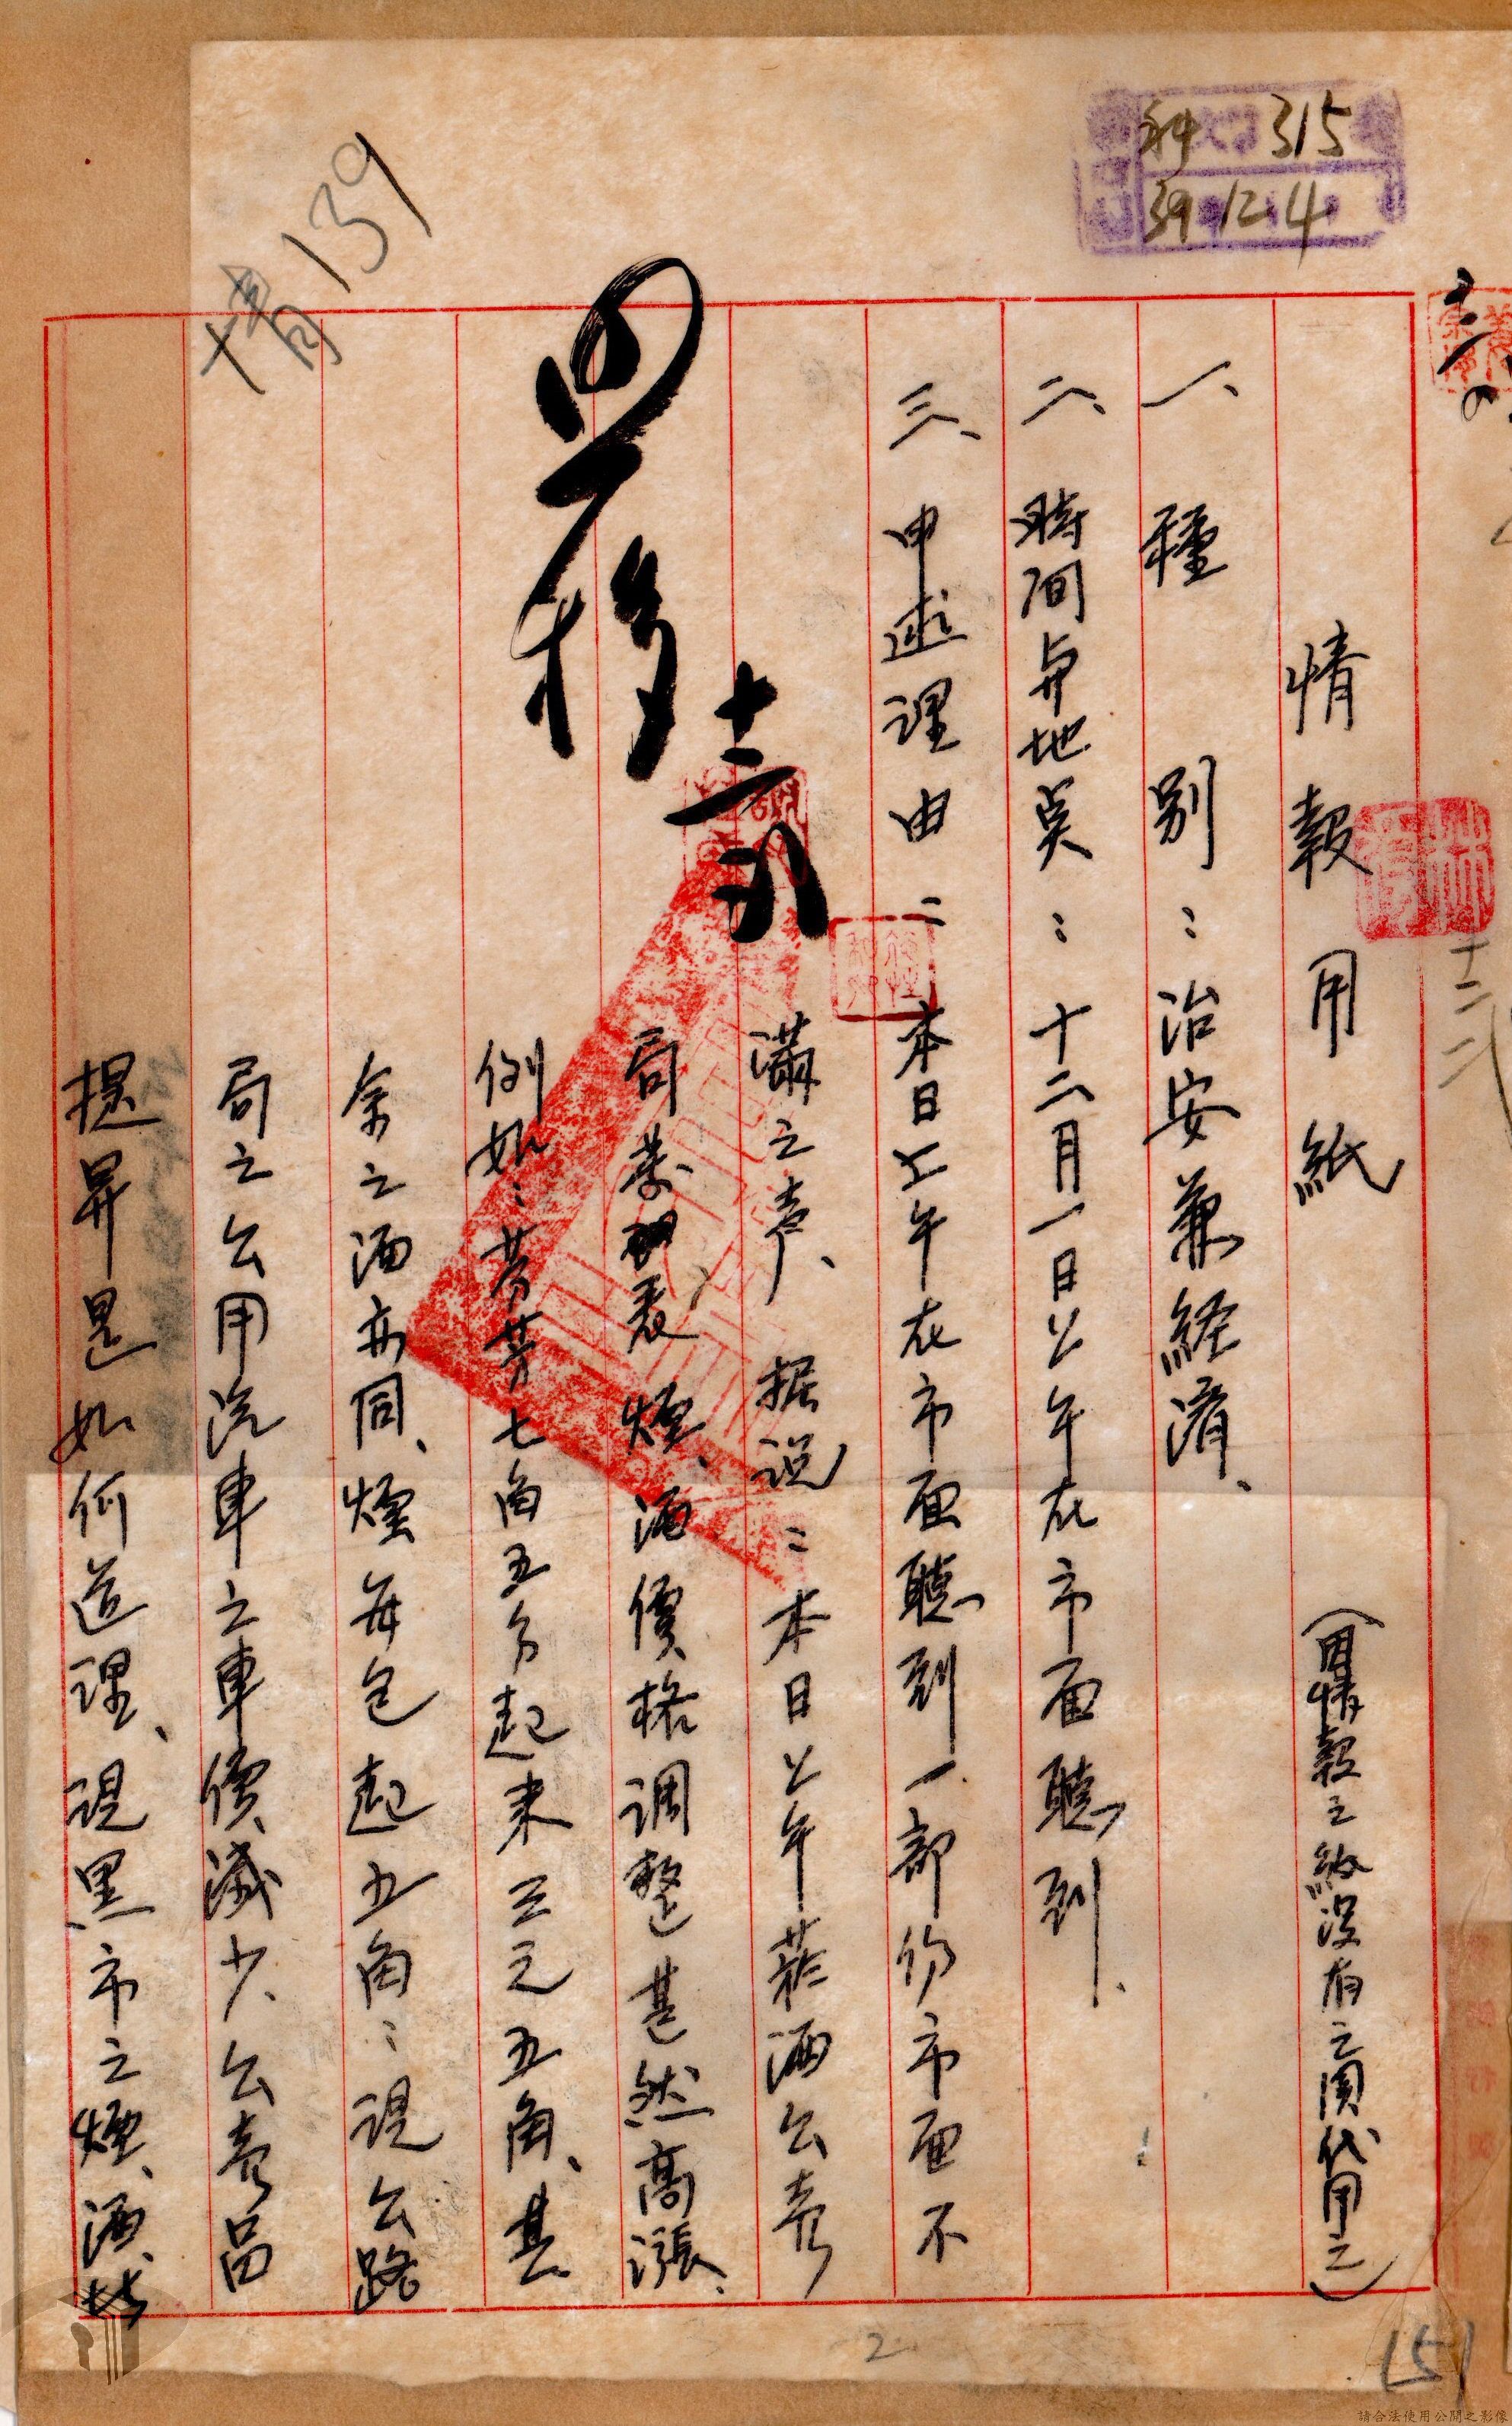 科 315
39 12.4
情139
情報用紙
(因情報之紙沒有之関代用之)
一、種別：治安兼経済、
二、時间与地臭：十二月一日公午在市面聽到、
三、申述理由：本日上午在市面聽到一部份市面不
滿之声、据说：本日公午菸酒公売
局発表煙、酒價格调整甚然高漲、
例如：芳芳七角五分起来三元五角、其
余之酒亦同、煙每包起五角：現公路
局之公用汽車之車價減少、公売品
提昇是如何道理、現黒市之煙、酒、
十二
2
151
請合法使用公開之影像